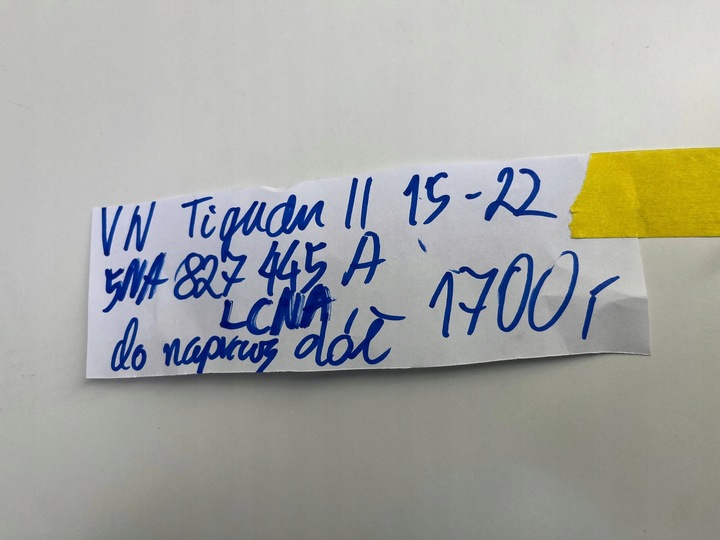 VW Tiguan II 15-22
5NA 827 445 A
LCNA 1700,-
do naprawy dół